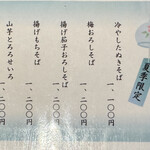 夏季限定
冷やしたぬきそば 一、一〇〇円
梅おろしそば 一、一〇〇円
揚げ茄子おろしそば 一、二〇〇円
揚げもちそば 一、二〇〇円
山芋とろろせいろ 一、二〇〇円